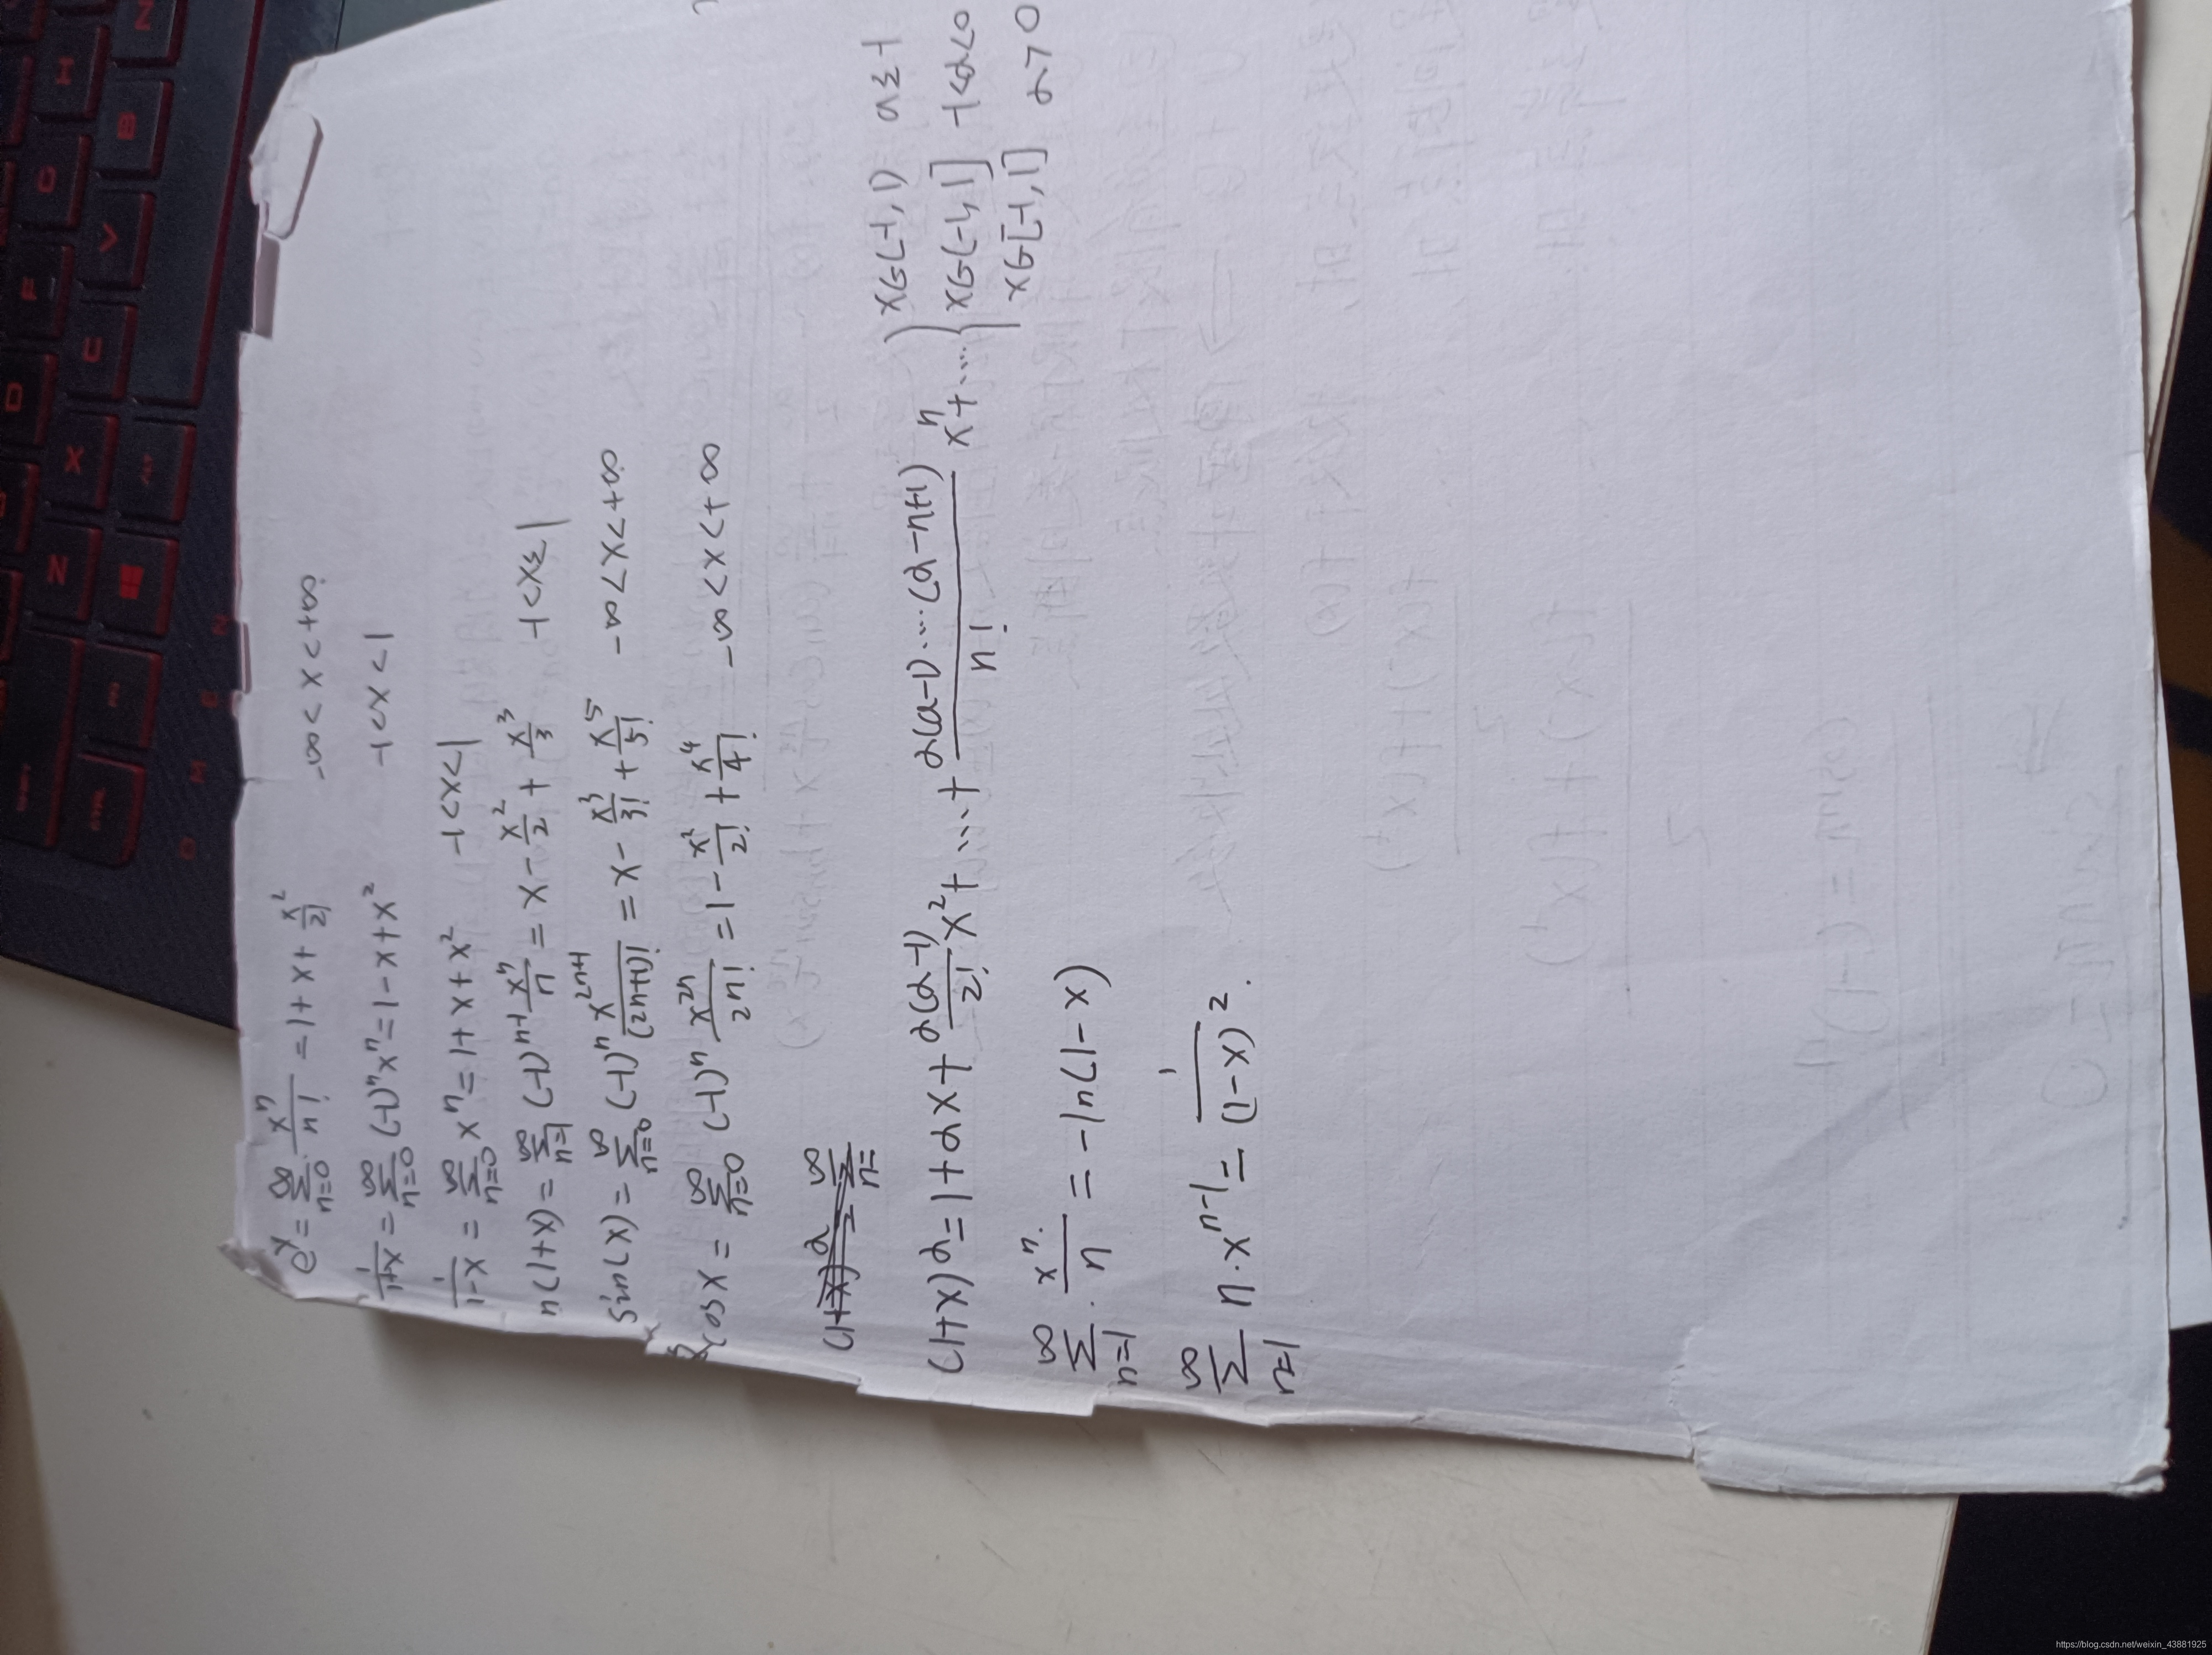 e^x = ∑_{n=0}^{∞} x^n/n! = 1+x+x^2/2! -∞<x<+∞
1/(1+x) = ∑_{n=0}^{∞} (-1)^n x^n = 1-x+x^2 -1<x<1
1/(1-x) = ∑_{n=0}^{∞} x^n = 1+x+x^2 -1<x<1
n(1+x) = ∑_{n=1}^{∞} (-1)^{n-1} x^n/n = x-x^2/2+x^3/3 -1<x≤1
sin(x) = ∑_{n=0}^{∞} (-1)^n x^{2n+1}/(2n+1)! = x-x^3/3!+x^5/5! -∞<x<+∞
cosx = ∑_{n=0}^{∞} (-1)^n x^{2n}/2n! = 1-x^2/2!+x^4/4! -∞<x<+∞
(1+x)^α = 1+αx+α(α-1)/2! x^2+...+α(α-1)...(α-n+1)/n! x^n+.... { x∈(-1,1) α≤-1
x∈(-1,1] -1<α<0
x∈[-1,1] α>0
∑_{n=1}^{∞} x^n/n = -ln(1-x)
∑_{n=1}^{∞} n·x^{n-1} = 1/(1-x)^2.
https://blog.csdn.net/weixin_43881925